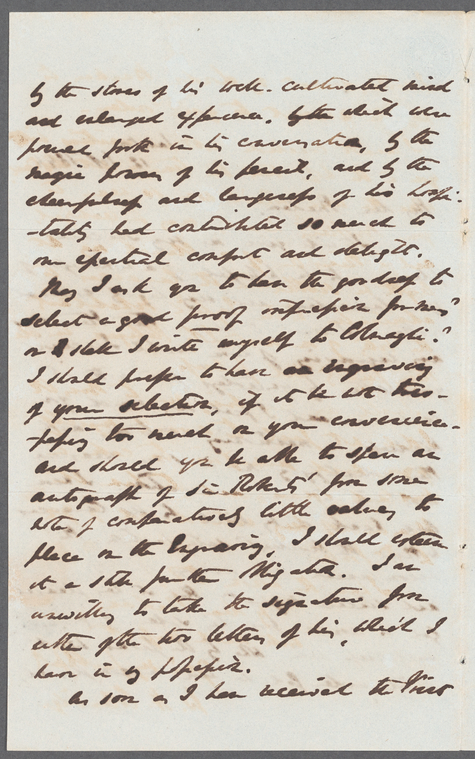 by the stores of his well-cultivated mind
and enlarged experience, by the which were
poured forth in his conversation, by the
magic powers of his pencil, and by the
cheerfulness and largeness of his hospi-
-tality had contributed so much to
our spectial comfort and delight.
May I ask you to have the goodness to
select a good proof impression for me?
or shall I write myself to Colnaghi?
I should prefer to have an engraving
of your selection, if it be not tres-
-passing too much on your convenience.
and should you be able to spare an
autograph of Sir Robert's from some
note of comparatively little value, to
place on the Engraving, I shall esteem
it a still further obligation. I am
unwilling to take the signature from
either of the two letters of his, which I
have in my possession.
As soon as I have received the Print